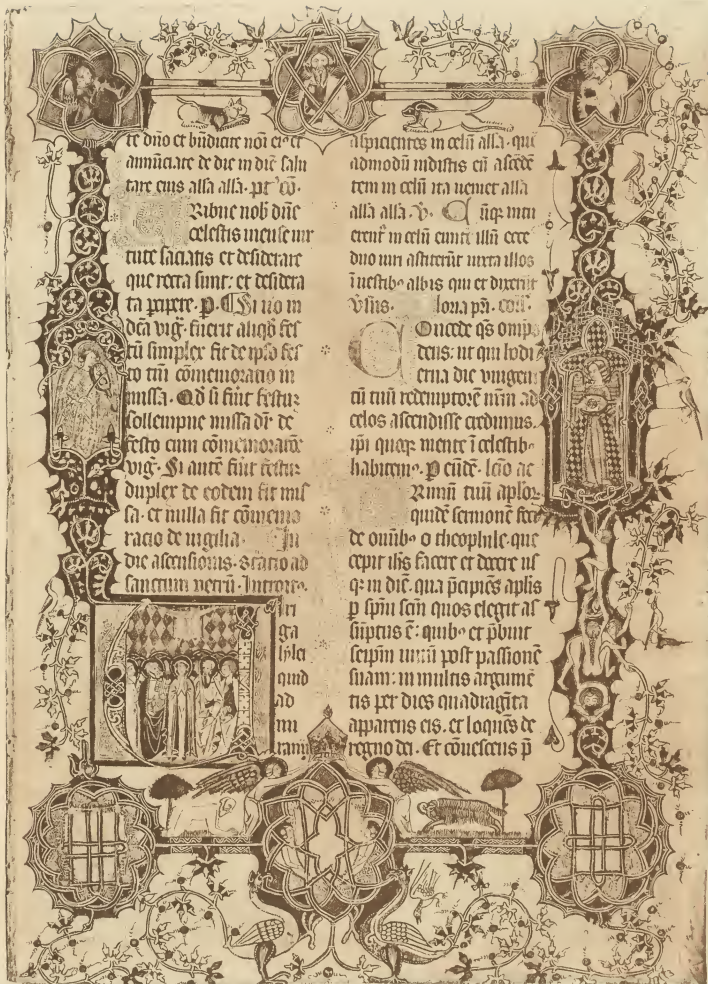 te dno et bndicite noi eius et
annuciate de die in die salu
tare eius alla alla. pt co.
Ribue nob dne
celestis mense uir
tute saciatis et desiderare
que recta sunt: et desidera
ta pcipere. p. Si uo in
dca vig. fuerit aliqd fes
tu simplex fit de ipso fes
to tm comemoratio in
missa. Qd si fuit festur
sollempne missa dr de
festo cum comemoratoe
vig. Si aute fuit festur
duplex de eodem fit mis
sa. et nulla fit comemo
racio de uigilia. In
die ascensionis. statio ad
sanctum petru. Introit.
iri
ga
lylei
quid
ad
mi
rami
aspicientes in celu alla. que
admodu uidistis eu ascede
tem in celu ita ueniet alla
alla alla. v. Cuqz intu
erent in celu eunte illu ecce
duo uiri astiterut iuxta illos
i uestibz albis qui et dixerut
Vsus. loria pri. coll.
Oncede qs omps
deus: ut qui hodi
erna die unigeni
tu tuu redemptore nrm ad
celos ascendisse credimus.
ipi quoqz mente i celestibz
habitemz. P eude. lcio ac
Rimu tuu aplor
quide sermone feci
de omibz o theophile. que
cepit ihs facere et docere us
qz in die. qua pcipies aplis
p spm scm quos elegit as
suptus e: quibz et pbuit
seipm uiuu post passione
suam: in multis argume
tis per dies quadragita
apparens eis. et loques de
regno dei. Et conuescens p